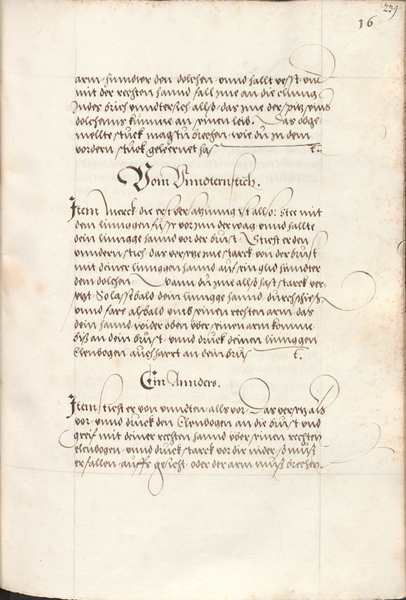 229
16
arm hinndter den dolchen vnnd fallt vesst vnd
mit der rechten hannd fall ine an die clinng
Indes brich vnndtersich allso das ine der spitz seins
dolchenns kumme an seinen leib. Das obge
mellte stuck magstu brechen wie du in dem
vordern stuck geleernet hast
Vom Vnndternstich.
Item Merck die erst versatzung ist also stee mit
dem linnggen fuß vor inn der waag vnnd hallte
dein lingge hannd vor der brust. Sticht er den
vnndern stich dar versetz ine starck von der brust
mit deiner linnggen hannd auf sein glid hinndter
dem dolchen. Wann du ine also hast starck ver
setzt So lass bald dein lingge hannd durchschießen
vnnd fare alsbald vmb seinen rechten arm das
dein hannd wider oben vber seinen arm komme
biß an dein brust vnnd druck deinen linnggen
elenbogen aussharrt an dein brust
Ein Annders.
Item sticht er von vnndten alls vor. Das versetz als
vor vnnd druck den Elenbogen an die brust vnd
greif mit deiner rechten hannd vber seinen rechten
elenbogen vnnd druck starck vor dir nider so muß
er fallen auffs gesicht oder der arm muß brechen.